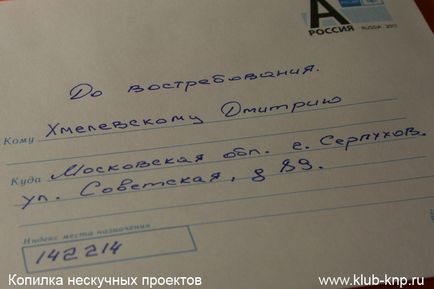 А
РОССИЯ RUSSIA 2011
До востребования.
Кому Хмелевскому Дмитрию
Куда Московская обл. г. Серпухов.
ул. Советская, д 89.
Индекс места назначения
142214
Копилка нескучных проектов www.klub-knp.ru